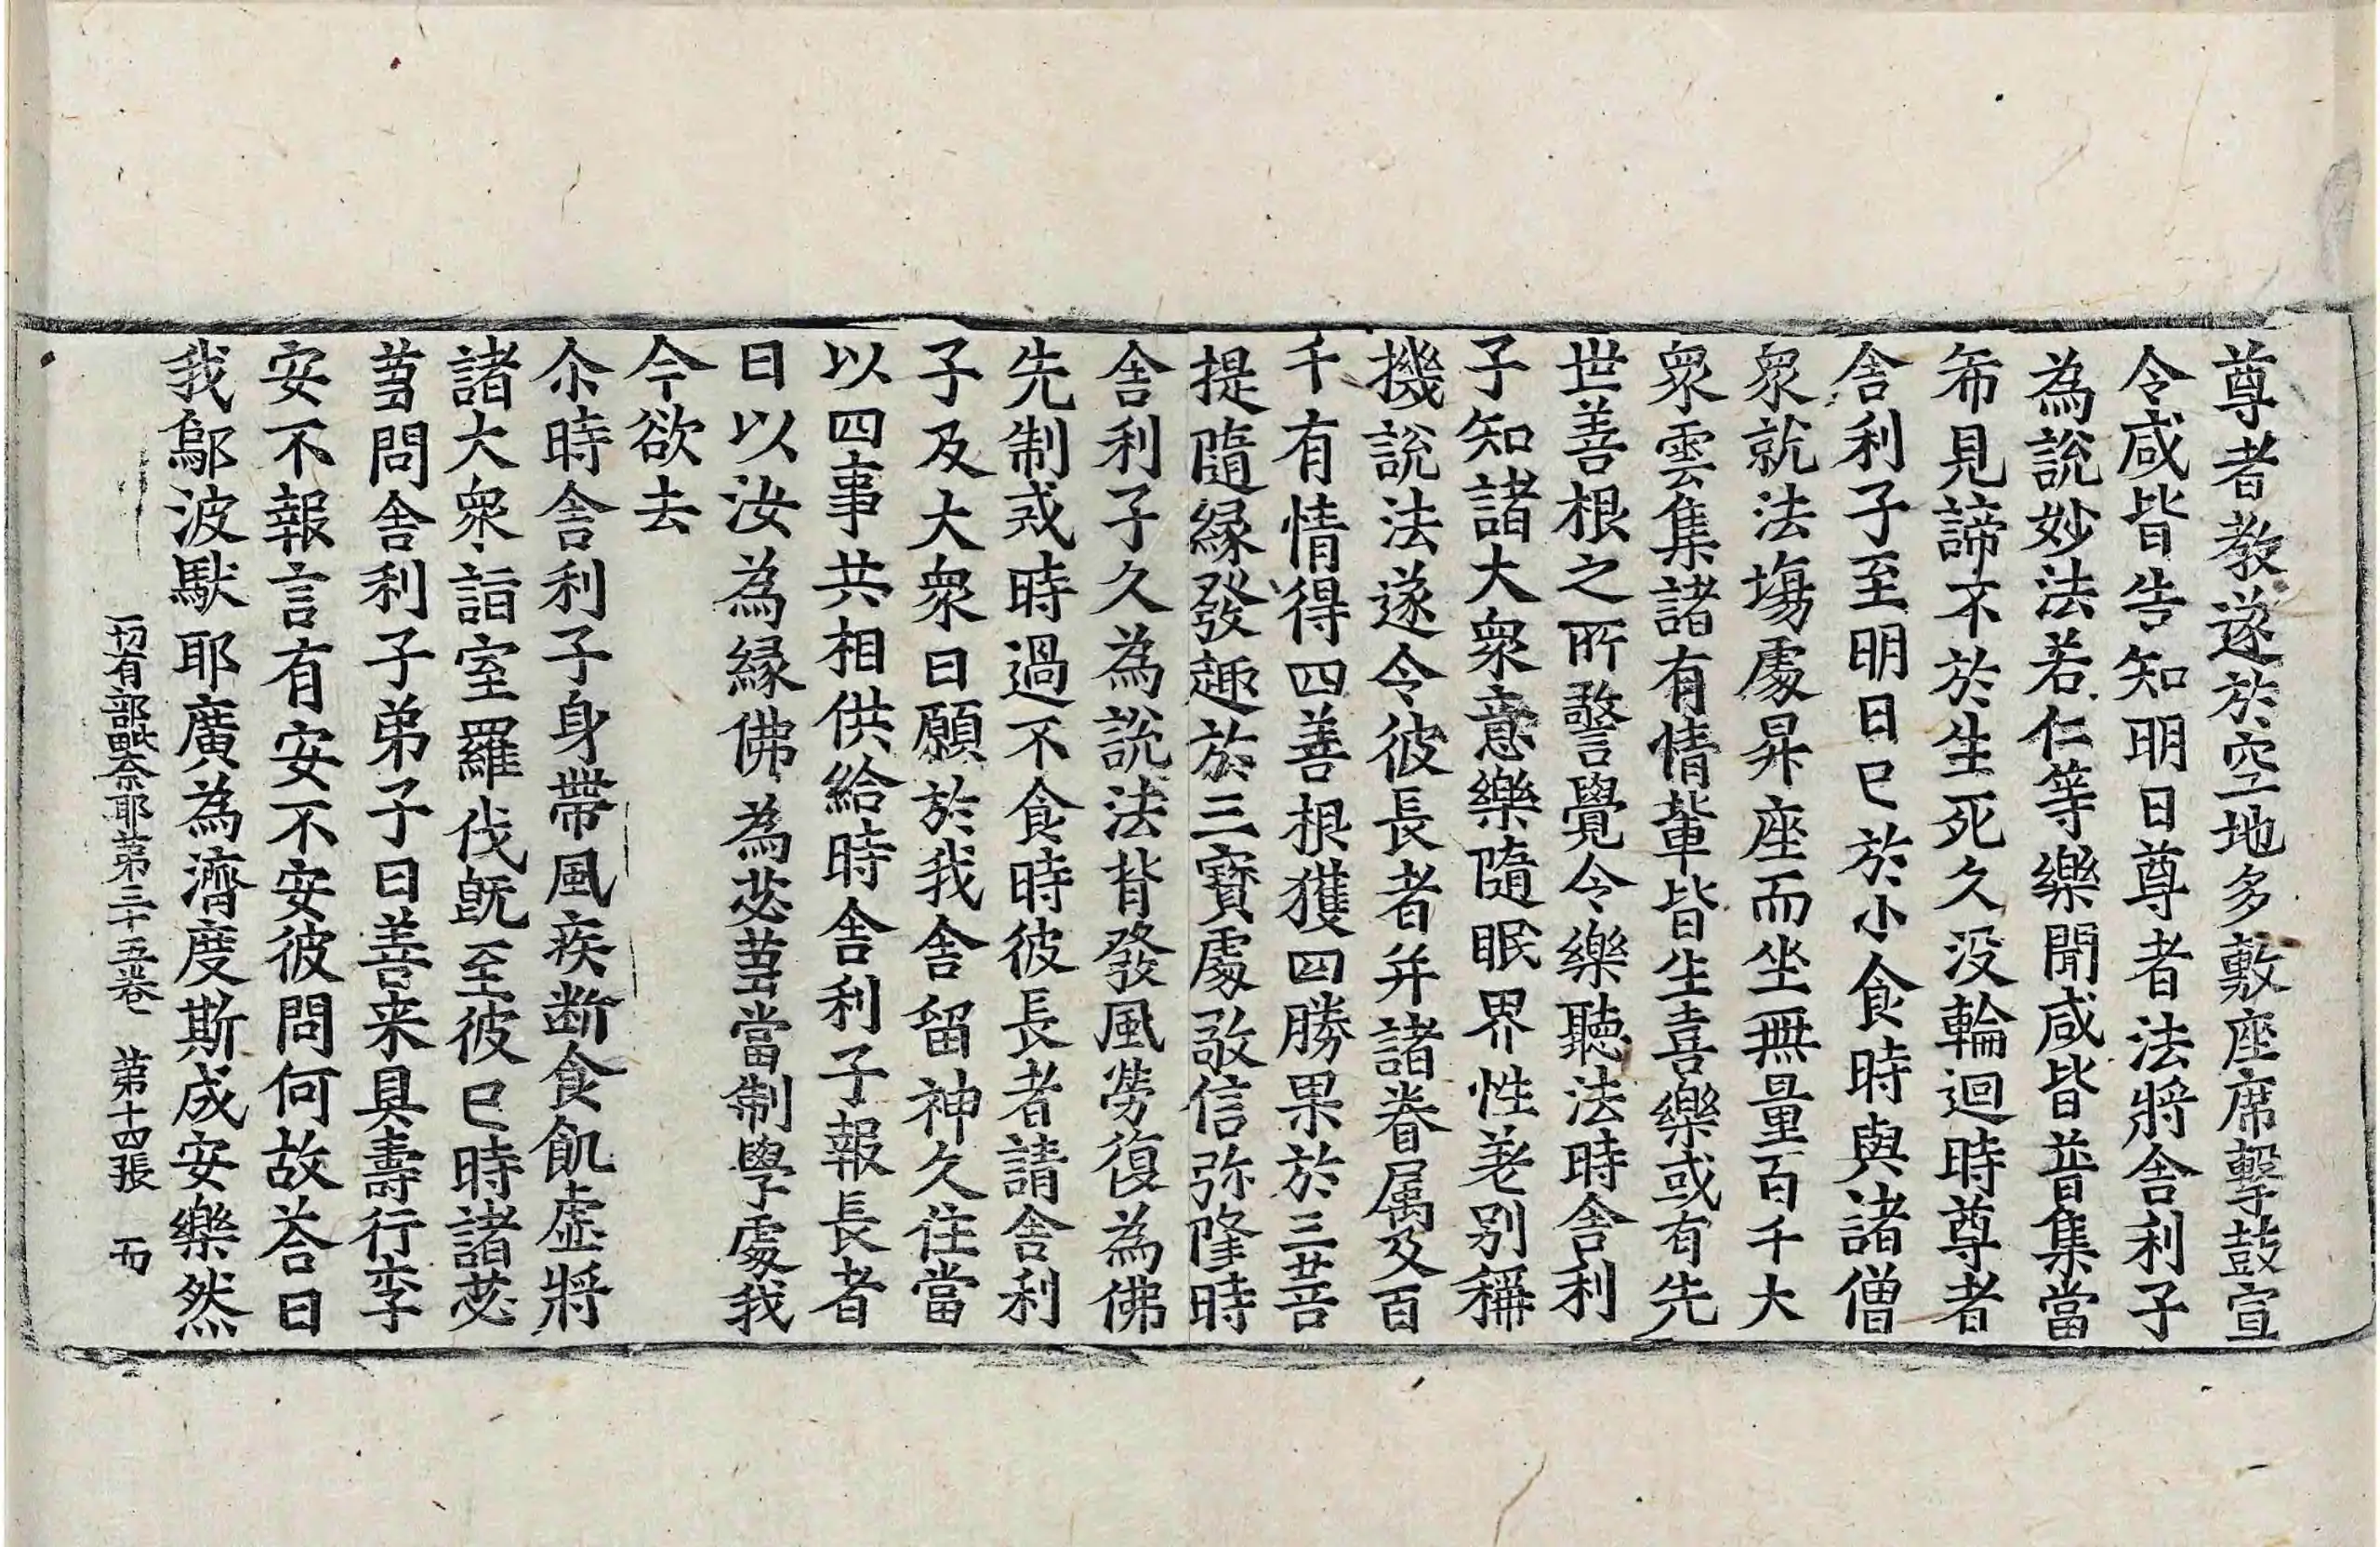 尊者教遂於空地多敷座席擊鼓宣
令咸皆告知明日尊者法將舍利子
為說妙法若仁等樂聞咸皆普集當
希見諦不於生死久没輪迴時尊者
舍利子至明日已於小食時與諸僧
眾就法場處昇座而坐無量百千大
眾雲集諸有情輩皆生喜樂或有先
世善根之所警覺令樂聽法時舍利
子知諸大眾意樂隨眠界性差别稱
機說法遂令彼長者并諸眷属及百
千有情得四善根獲四勝果於三菩
提隨縁發趣於三寶處敬信弥隆時
舍利子久為說法背發風勞復為佛
先制戒時過不食時彼長者請舍利
子及大眾曰願於我舍留神久住當
以四事共相供給時舍利子報長者
曰以汝為縁佛為苾蒭當制學處我
今欲去
尒時舍利子身帶風疾断食飢虛將
諸大眾詣室羅伐既至彼已時諸苾
蒭問舍利子弟子曰善来具壽行李
安不報言有安不安彼問何故荅曰
我鄔波馱耶廣為濟度斯成安樂然
一切有部毗奈耶苐三十五卷　苐十四張　而